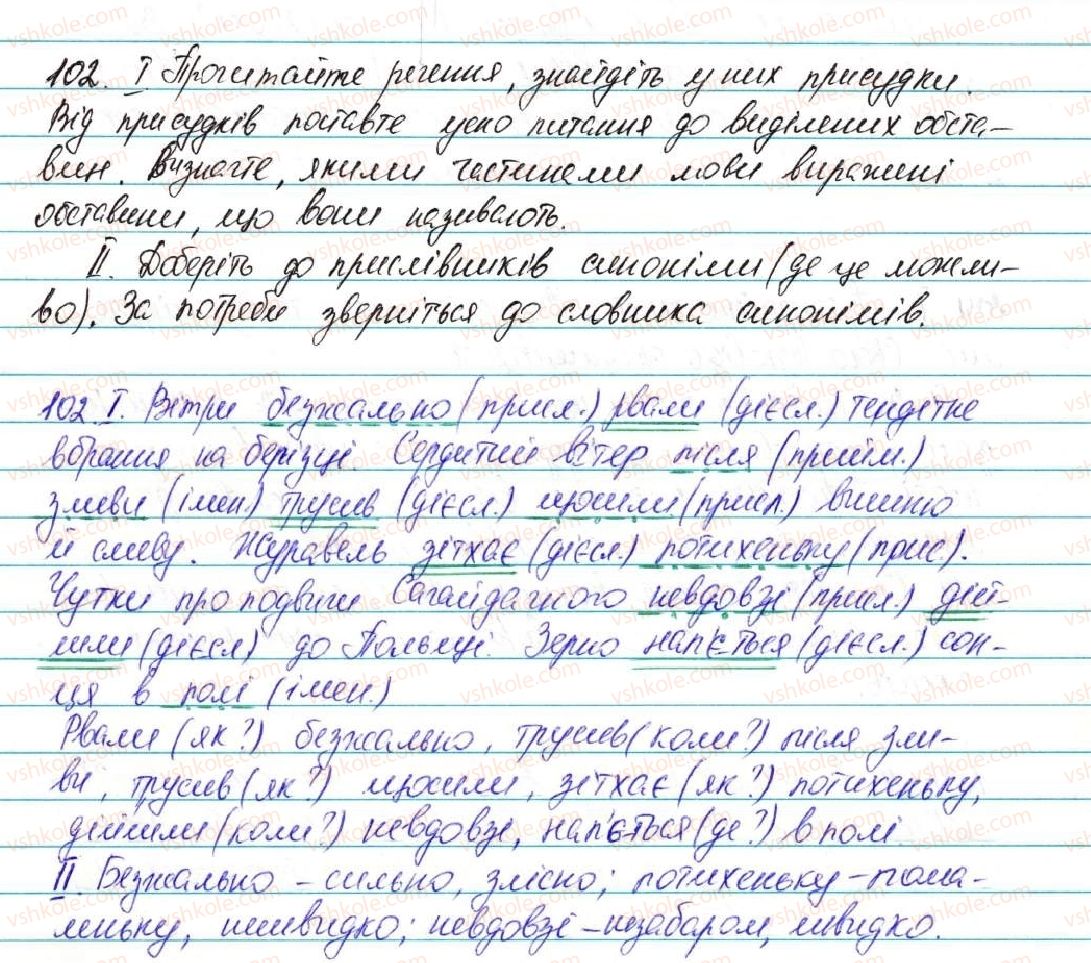 102. I Прочитайте речення, знайдіть у них присудки.
Від присудків поставте усно питання до виділених обста-
вин. Визначте, якими частинами мови виражені
обставини, що вони називають.
II. Доберіть до прислівників синоніми (де це можли-
во). За потреби зверніться до словника синонімів.
102 I. Вітри безжально (присл.) рвали (дієсл.) тендітне
вбрання на берізці. Сердитий вітер після (прийм.)
зливи (імен.) трусив (дієсл.) щосили (присл.) вишню
й сливу. Журавель зітхає (дієсл.) потихеньку (прис.).
Чутки про подвиги Сагайдачного невдовзі (присл.) дій-
шли (дієсл) до Польщі. Зерно нап'ється (дієсл.) сон-
ця в полі (імен.)
Рвали (як?) безжально, трусив (коли?) після зли-
ви, трусив (як?) щосили, зітхає (як?) потихеньку,
дійшли (коли?) невдовзі, нап'ється (де?) в полі
II. Безжально – сильно, злісно; потихеньку – пома-
леньку, нешвидко; невдовзі – незабаром, швидко.